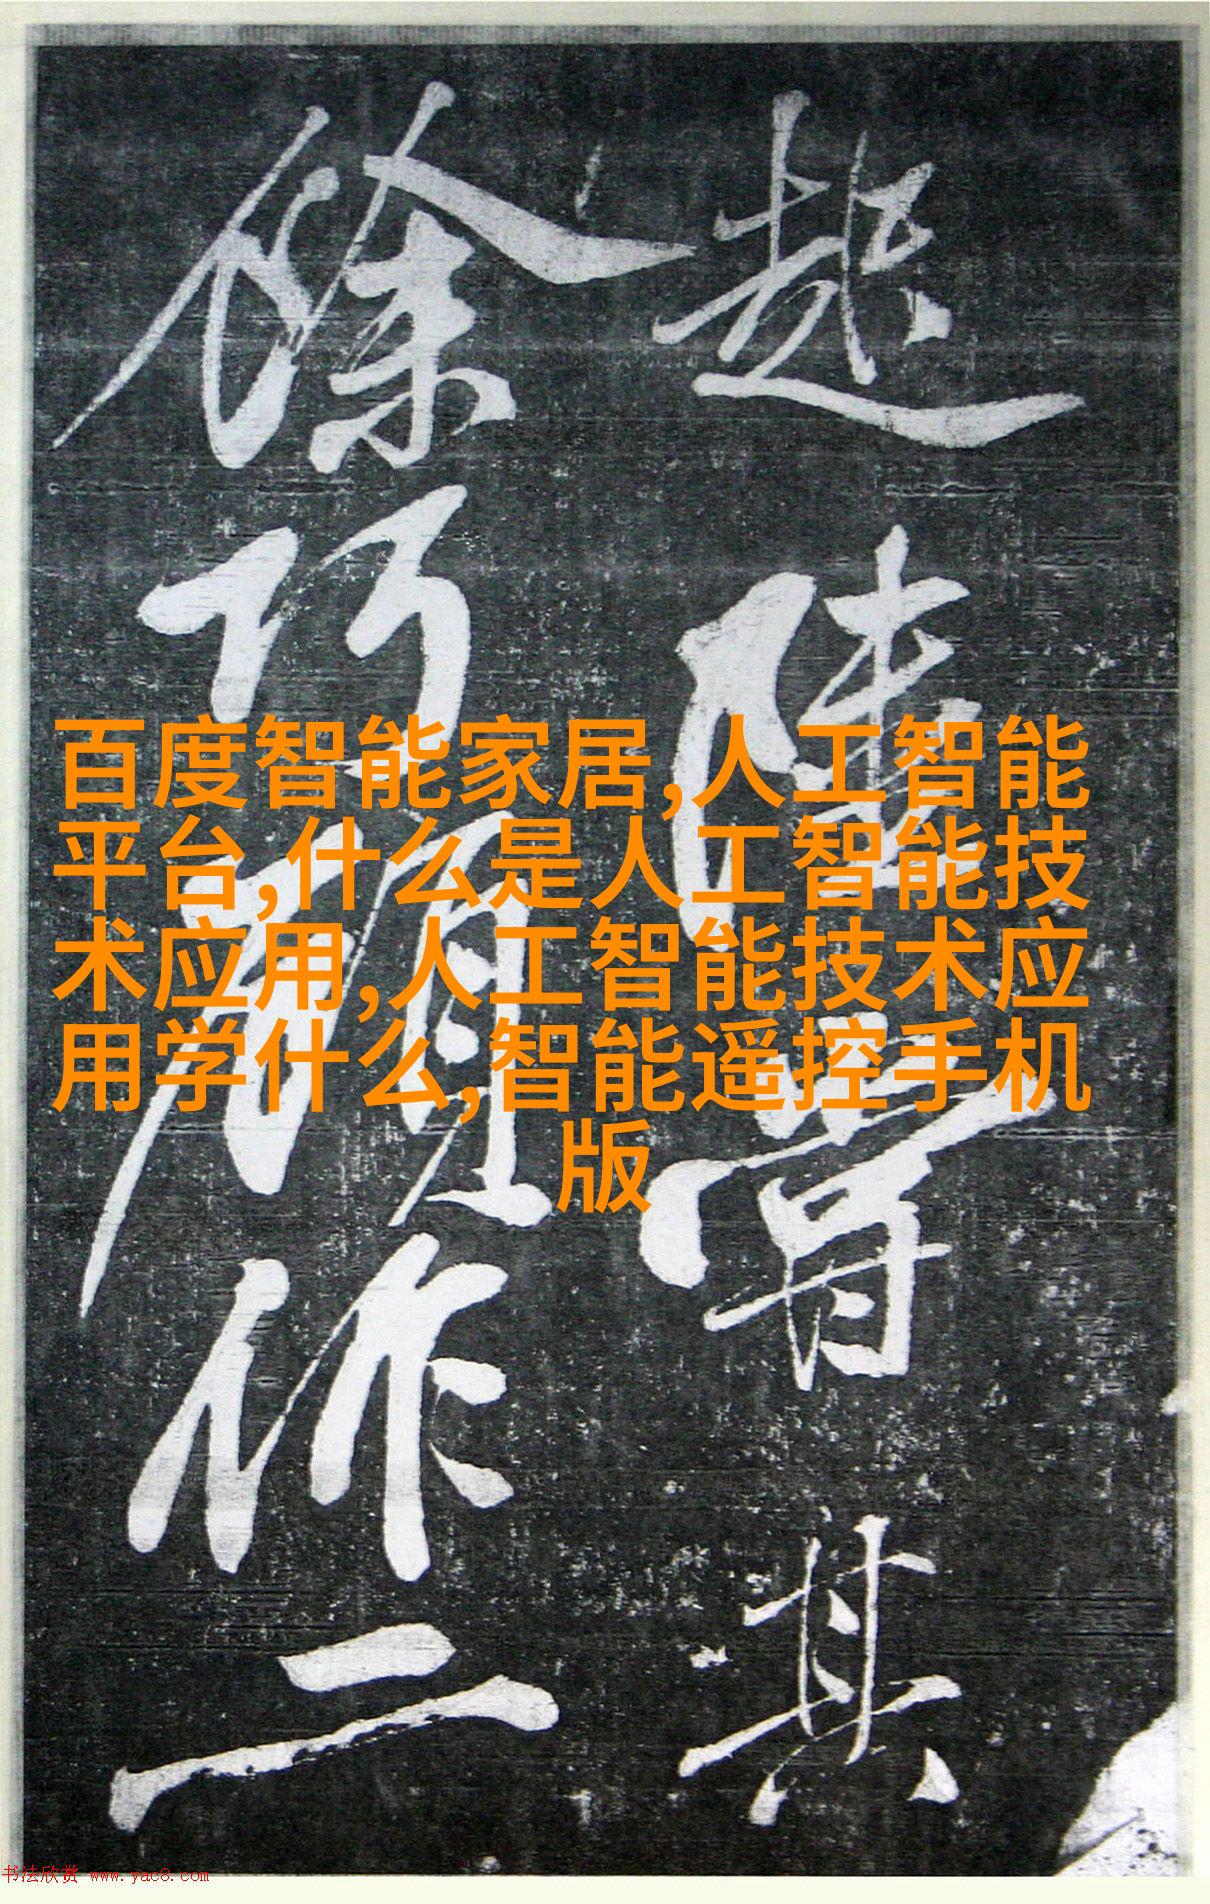 其
作二
百度智能家居,人工智能
平台,什么是人工智能技
术应用,人工智能技术应
用学什么,智能遥控手机
版
书法欣赏 www.yac8.com